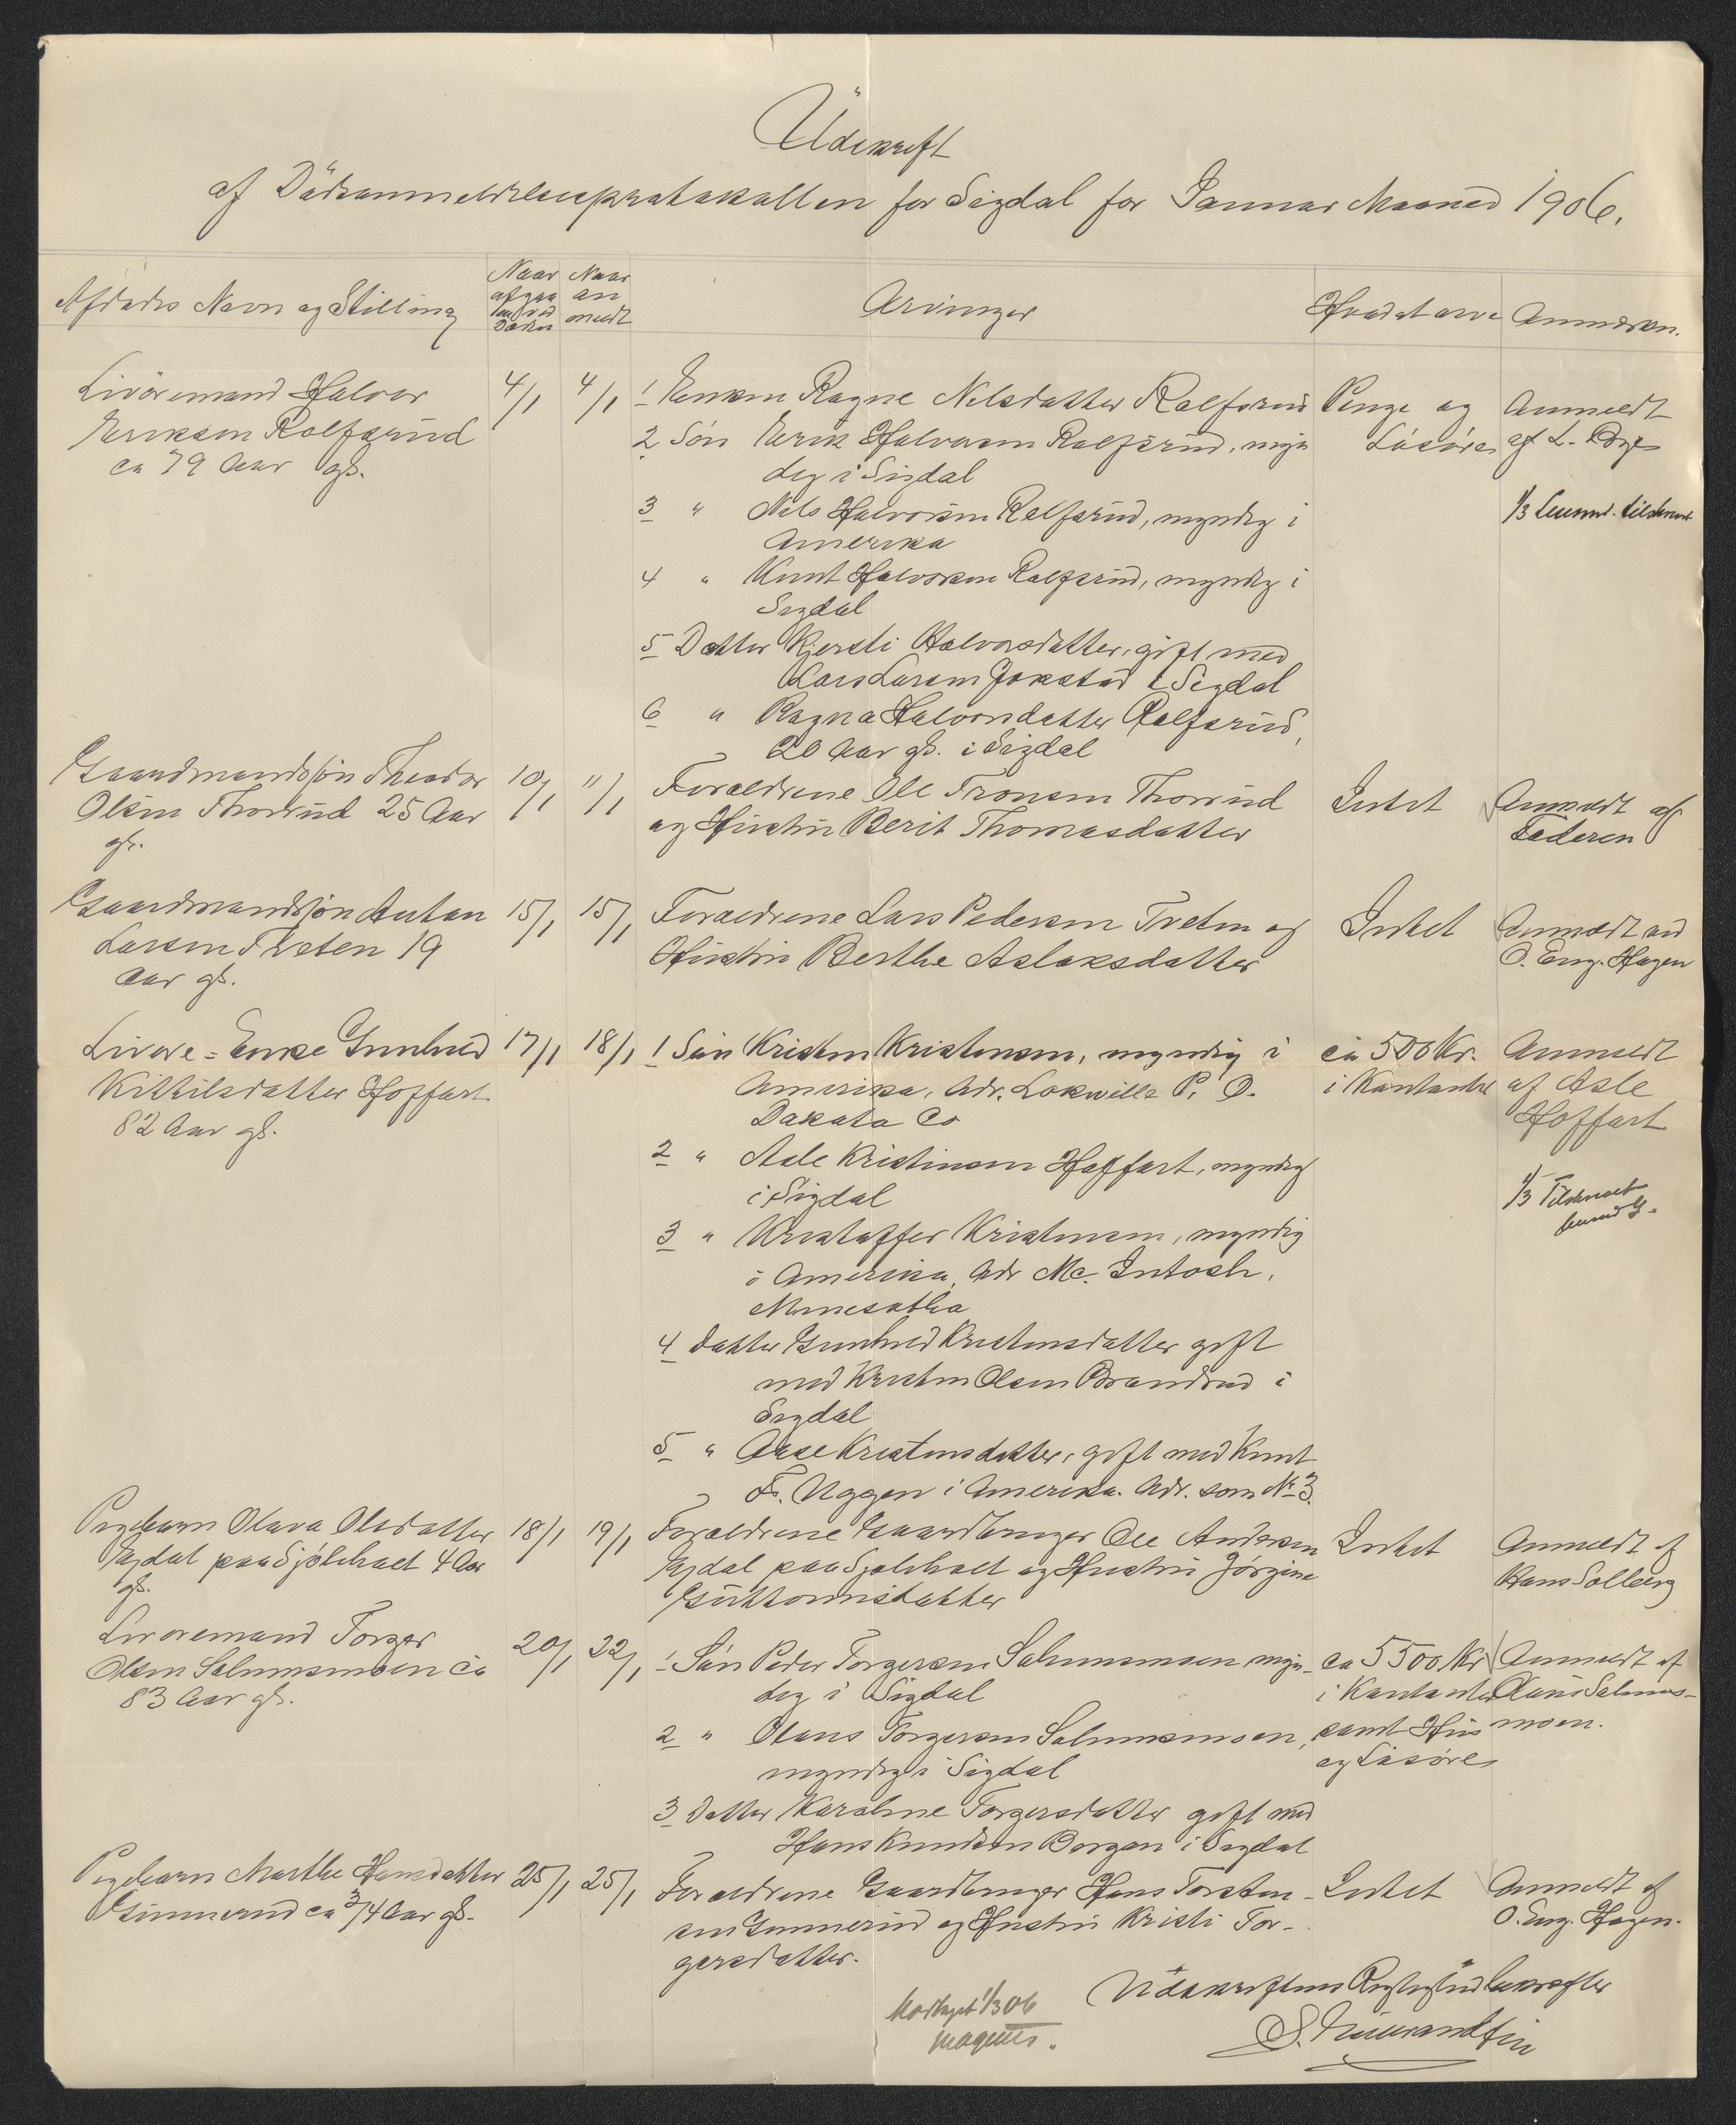 Udskrift
af Dödsanmeldelsesprotokollen for Sigdal for Januar Maaned 1906.
Afdødes Navn og Stilling
Naar afgaaet ved Döden
Naar anmeldt
Arvinger
Hvad at arve
Anmærkn.
Livöremand Halvor
Eriksen Rolfsrud
ca 79 Aar gl.
4/1
4/1
1 Enken Ragne Nilsdatter Rolfsrud
2 Sön Erik Halvorsen Rolfsrud, myn
dig i Sigdal
3 " Nils Halvorsen Rolfsrud, myndig i
Amerika
4 " Knut Halvorsen Rolfsrud, myndig i
Sigdal
5 Datter Kjersti Halvorsdatter, gift med
Lars Larsen Jokstad i Sigdal
6 " Ragna Halvorsdatter Rolfsrud,
20 Aar gl. i Sigdal
Penge og
Lösöre
Anmeldt
af L.
1/3
Gaardmandssön Theodor
Olsen Thorrud 25 Aar
gl.
10/1
11/1
Forældrene Ole Tronsen Thorrud
og Hustru Berit Thomasdatter
Intet
Anmeldt af
Faderen
Gaardmandssön Anton
Larsen Tveten 19
Aar gl.
15/1
15/1
Forældrene Lars Pedersen Tveten og
Hustru Berthe Aslaksdatter
Intet
Anmeldt ved
O. Eng. Hagen
Livøre-Enke Gunhild
Kittilsdatter Hoffart
82 Aar gl.
17/1
18/1
1 Sön Kristen Kristensen, myndig i
Amerika, Adr. Lokwille P. O.
Dakota Co
2 " Asle Kristensen Hoffart, myndig
i Sigdal
3 " Kristoffer Kristensen, myndig
i Amerika, Adr Mc. Intosh,
Minesotha
4 Datter Gunhild Kristensdatter gift
med Kristen Olsen Brandrud i
Sigdal
5 " Aase Kristensdatter, gift med Knut
F. Uggen i Amerika. Adr. som No 3.
ca 500 Kr.
i Kontanter
Anmeldt
af Asle
Hoffart
1/3 Tilskrevet
Pigebarn Olava Olsdatter
paa 4 Aar
gl.
18/1
19/1
Forældrene Gaardbruger Ole Andersen
paa og Hustru Jörgine
Guttormsdatter
Intet
Anmeldt af
Hans Solberg
Livøremand Torger
Olsen Salumsmoen ca
83 Aar gl.
20/1
22/1
1 Sön Peder Torgersen Salumsmoen myn-
dig i Sigdal
2 " Olaus Torgersen Salumsmoen,
myndig i Sigdal
3 Datter Karoline Torgersdatter gift med
Hans Knudsen Borgen i Sigdal
ca 5500 Kr
i Kontanter
samt Hus
og Lösöre
Anmeldt af
Olaus Salums-
moen.
Pigebarn Marthe Hansdatter
Gunnerud ca 3/4 Aar gl.
25/1
25/1
Forældrene Gaardbruger Hans Torsten-
sen Gunnerud og Hustru Kristi Tor-
gersdatter.
Intet
Anmeldt af
O. Eng. Hagen.
Modtaget 1/3 06
Udskriftens Rigtighed bekræfter